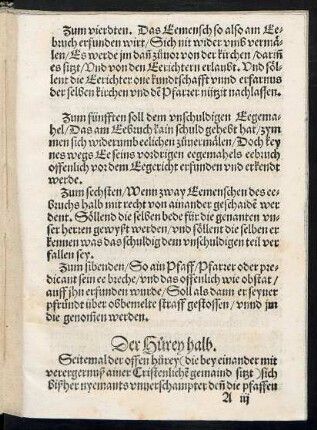 Zum vierdten. Das Eemensch so also am Ee-
bruch erfunden wirt/Sich nit wider vmb vermä-
len/Es werde jm dañ zůuor von der kirchen/dariñ
es sitzt/Vnd von den Eerichtern erlaubt. Vnd söl-
lent die Eerichter one kundtschafft vnnd erfarnus
der selben kirchen vnd dẽ Pfarrer nützit nachlassen.
Zum fünfften soll dem vnschuldigen Eegema-
hel/Das am Eebruch kain schuld gehebt hat/zym
men sich widerumb eelichen zůuermälen/Doch key
nes wegs Ee seins vordrigen eegemahels eebruch
offenlich vor dem Eegericht erfunden vnd erkendt
werde.
Zum sechsten/Wenn zway Eemenschen des ee-
bruchs halb mit recht von ainander geschaidẽ wer
dent. Söllend die selben bede für die genanten vn-
ser herren gewyßt werden/vnd söllent die selben er
kennen was das schuldig dem vnschuldigen teil ver
fallen sey.
Zum sibenden/So ain Pfaff/Pfarrer oder pre-
dicant sein ee breche/vnd das offenlich wie obstat/
auff jhn erfunden wurde/Soll als dann er seyner
pfründt über obbemelte straff gestossen/vnnd jm
die genom̃en werden.
Der Hůrey halb.
Seitemal der offen hůrey (die bey einander mit
verergernuß ainer Cristenlichẽ gemaind sitzt) sich
bißher nyemants vnuerschampter deñ die pfaffen
A iij